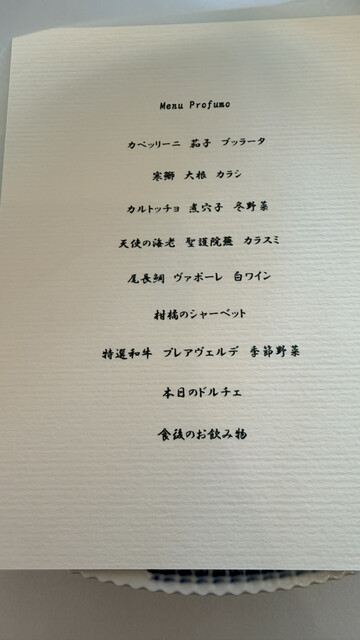 Menu Profumo
カペッリーニ 茄子 ブッラータ
寒鰤 大根 カラシ
カルトッチョ 煮穴子 冬野菜
天使の海老 聖護院蕪 カラスミ
尾長鯛 ヴァポーレ 白ワイン
柑橘のシャーベット
特選和牛 プレアヴェルデ 季節野菜
本日のドルチェ
食後のお飲み物